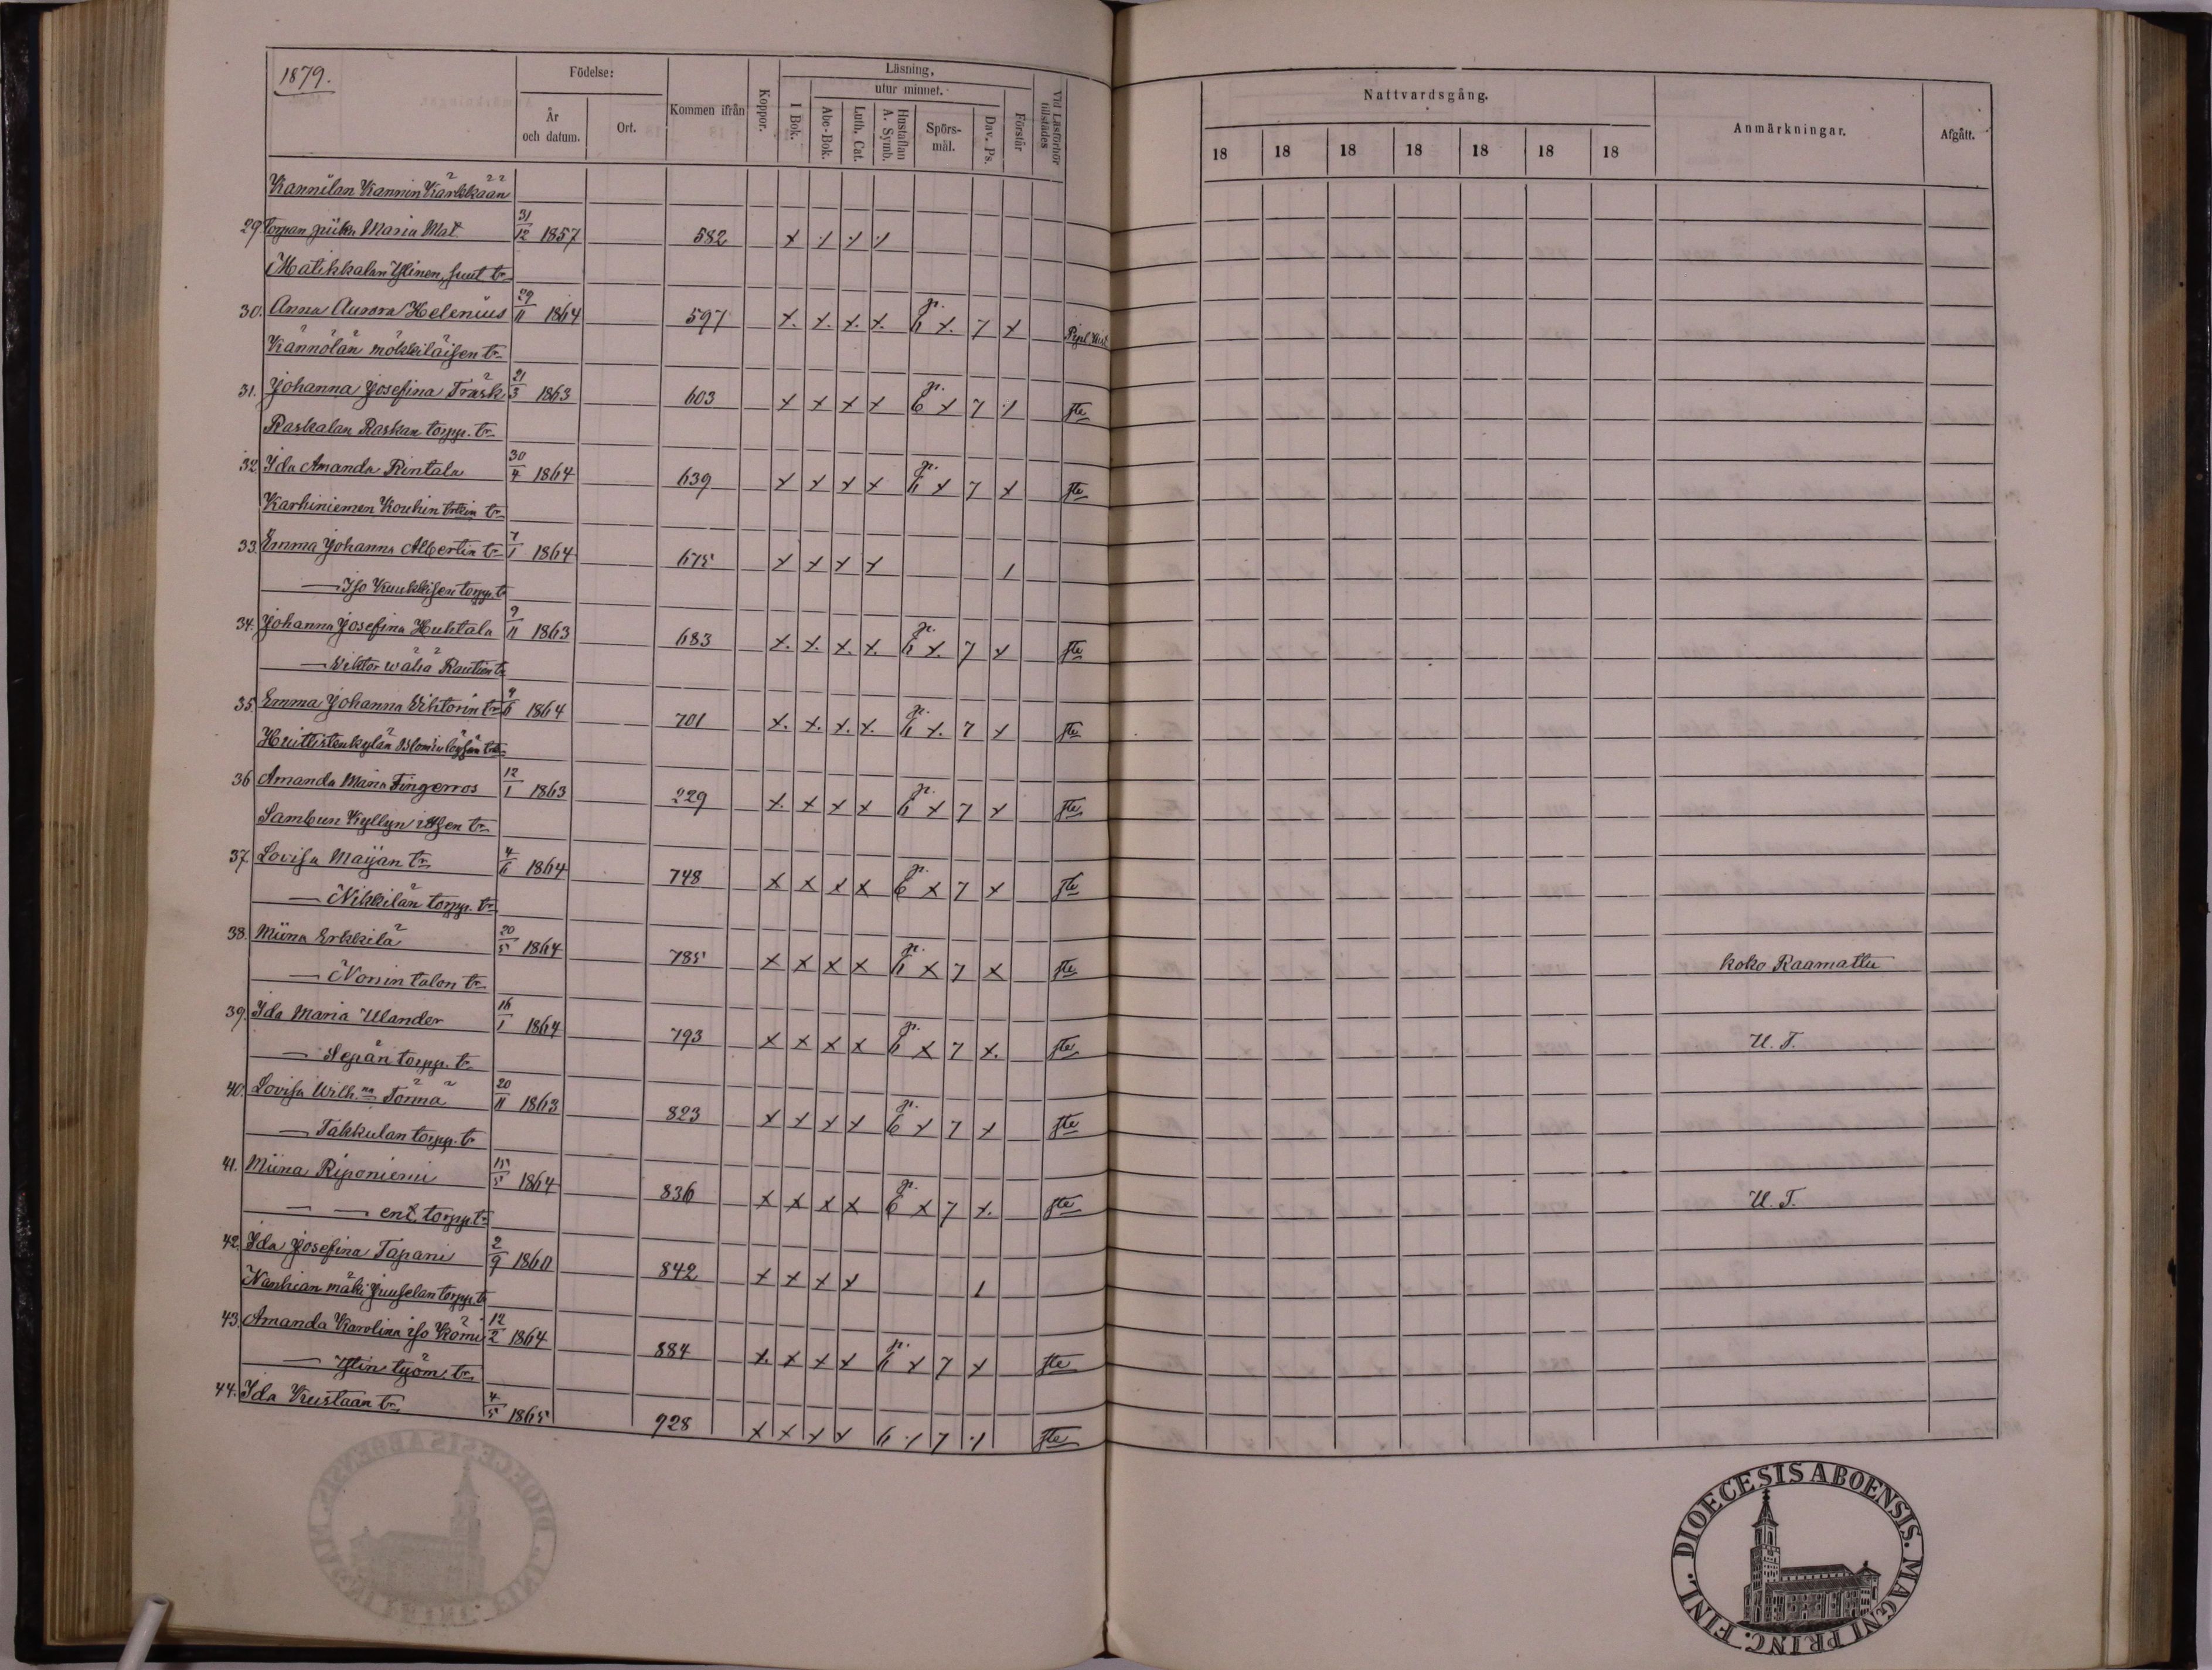 1879.
Födelse:
År och datum.
Ort.
Kommen ifrån
Koppor.
Läsning,
utur minnet.
I Bok.
Abc-Bok.
Luth. Cat.
Hustaflan A. Symb.
Spörsmål.
Dav. Ps.
Förstår
Vid Läsförhör tillstädes
Nattvardsgång.
18 18 18 18 18 18 18
Anmärkningar.
Afgått.
Kannilan Kannin Kärkkään
29 torpan piika Maria Mat. 31/12 1857 582 x ./ ./ ./
Matikkalan Ylinen, suut tr
30. Anna Aurora Helenius 29/11 1864 597 x. x. x. x. p. 6 x. 7 x Pipl. Hist.
Kännölän mökkiläisen tr
31. Johanna Josefina Träsk 21/3 1863 603 x x x x p. 6 x 7 ./ ste
Raskalan Raskan torpp. tr
32 Ida Amanda Rintala 30/4 1864 639 x x x x p. 6 x 7 x ste
Karhiniemen Kouhin tr
33. Emma Johanna Albertin tr 7/1 1864 675 x x x x /
— Iso Kuukkisen torpp. tr
34. Johanna Josefina Huhtala 9/11 1863 683 x. x. x. x. p. 6 x. 7 x ste
— Viktor wähä Raution tr
35. Emma Johanna Vihtorin tr 9/6 1864 701 x. x. x. x. p. 6 x. 7 x ste
Huittistenkylän
36 Amanda Maria Fingerroos 12/1 1863 229 x. x x x p. 6 x 7 x ste
Sambun Kyllyn itsen tr
37. Lovisa Maijan tr 4/6 1864 748 x x x x p. 6 x 7 x ste
— Nikkilän torpp. tr
38. Miina Erkkilä 20/5 1864 785 x x x x p. 6 x 7 x ste koko Raamattu
— Nonin talon tr
39. Ida Maria Ulander 16/1 1864 793 x x x x p. 6 x 7 x. ste U. T.
— Sepän torpp. tr
40. Lovisa Wilh.na Törmä 20/11 1863 823 x x x x p. 6 x 7 x ste
— Takkulan torpp. tr
41. Miina Riponiemi 15/5 1864 836 x x x x p. 6 x 7 x. ste U. T.
— — ent. torpp. tr
42. Ida Josefina Tapani 2/9 1860 842 x x x x /
Nanhian mäki Juuselan torpp. tr
43. Amanda Karolina iso Kömi 12/2 1864 884 x. x x x p. 6 x 7 x ste
— Ylin työm. tr
44. Ida Kustaan tr 4/5 1865 928 x x x x 6 ./ 7 ./ ste
DIOECESIS ABOENSIS. MAGNI PRINC. FINL.